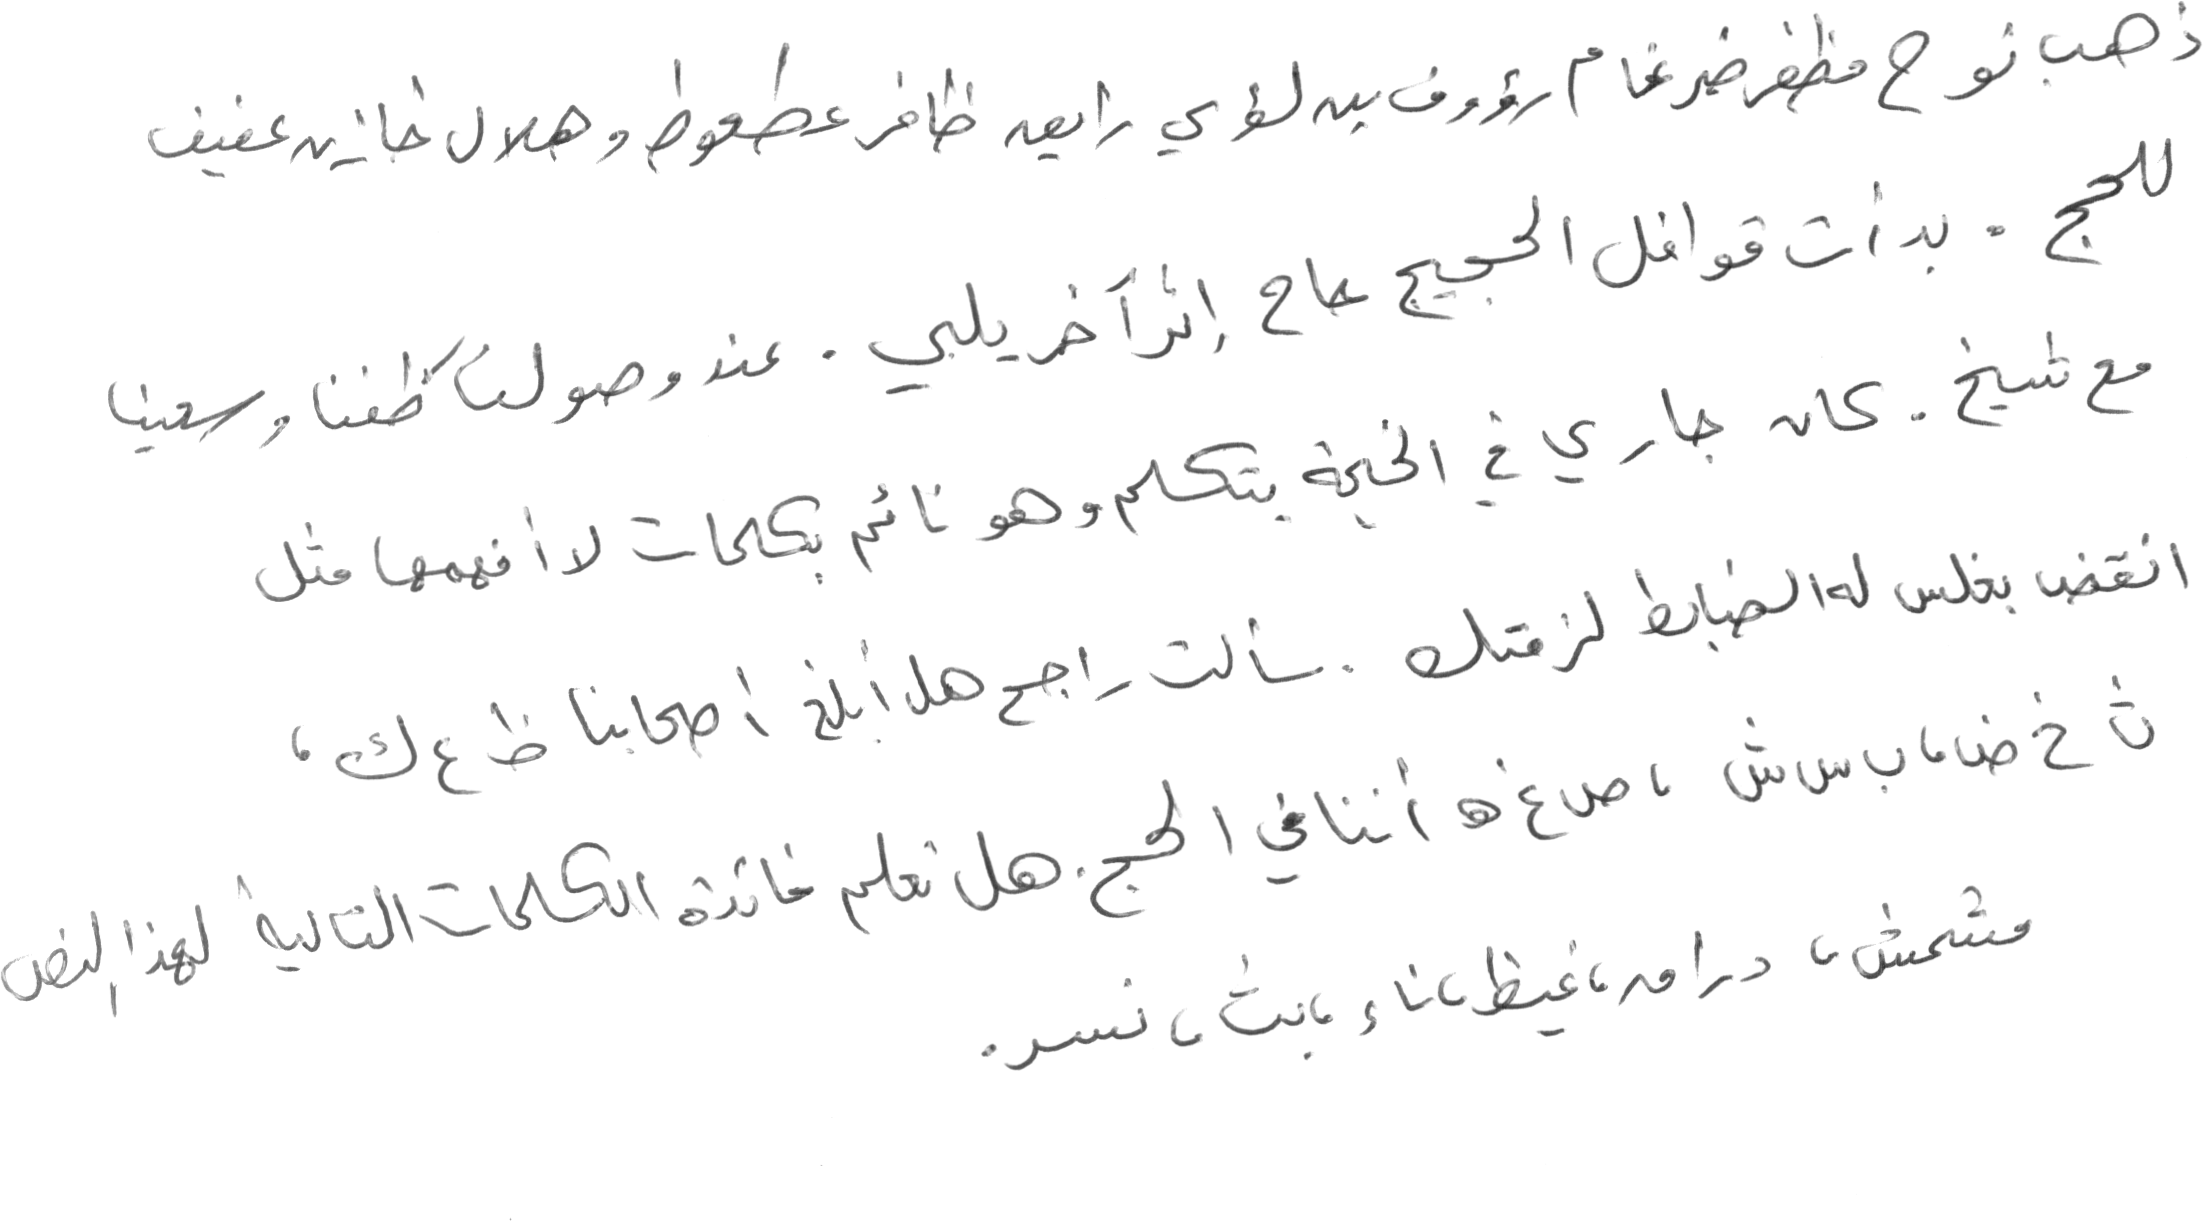 ذهب نوح مظفر ضرغام رؤوف بن لؤي رابعه ظافر عطعوط وهلال خازن عفيف
للحج . بدأت قوافل الحجيج حاج إثر آخر يلبي . عند وصولنا طفنا وسعينا
مع شيخ . كان جاري في الخيمة يتكلم وهو نائم بكلمات لا أفهمها مثل
انقض بغلس له الضابط لزقتك . سألت راجح هل أبلغ أصحابنا ظ ع ك ،
ث خ ض ، ب س ش ، ص غ ه أننا في الحج . هل تعلم فائدة الكلمات التالية لهذا النص
مشمش ، درامه ، غيظ ، ناء ، بث ، نسر .